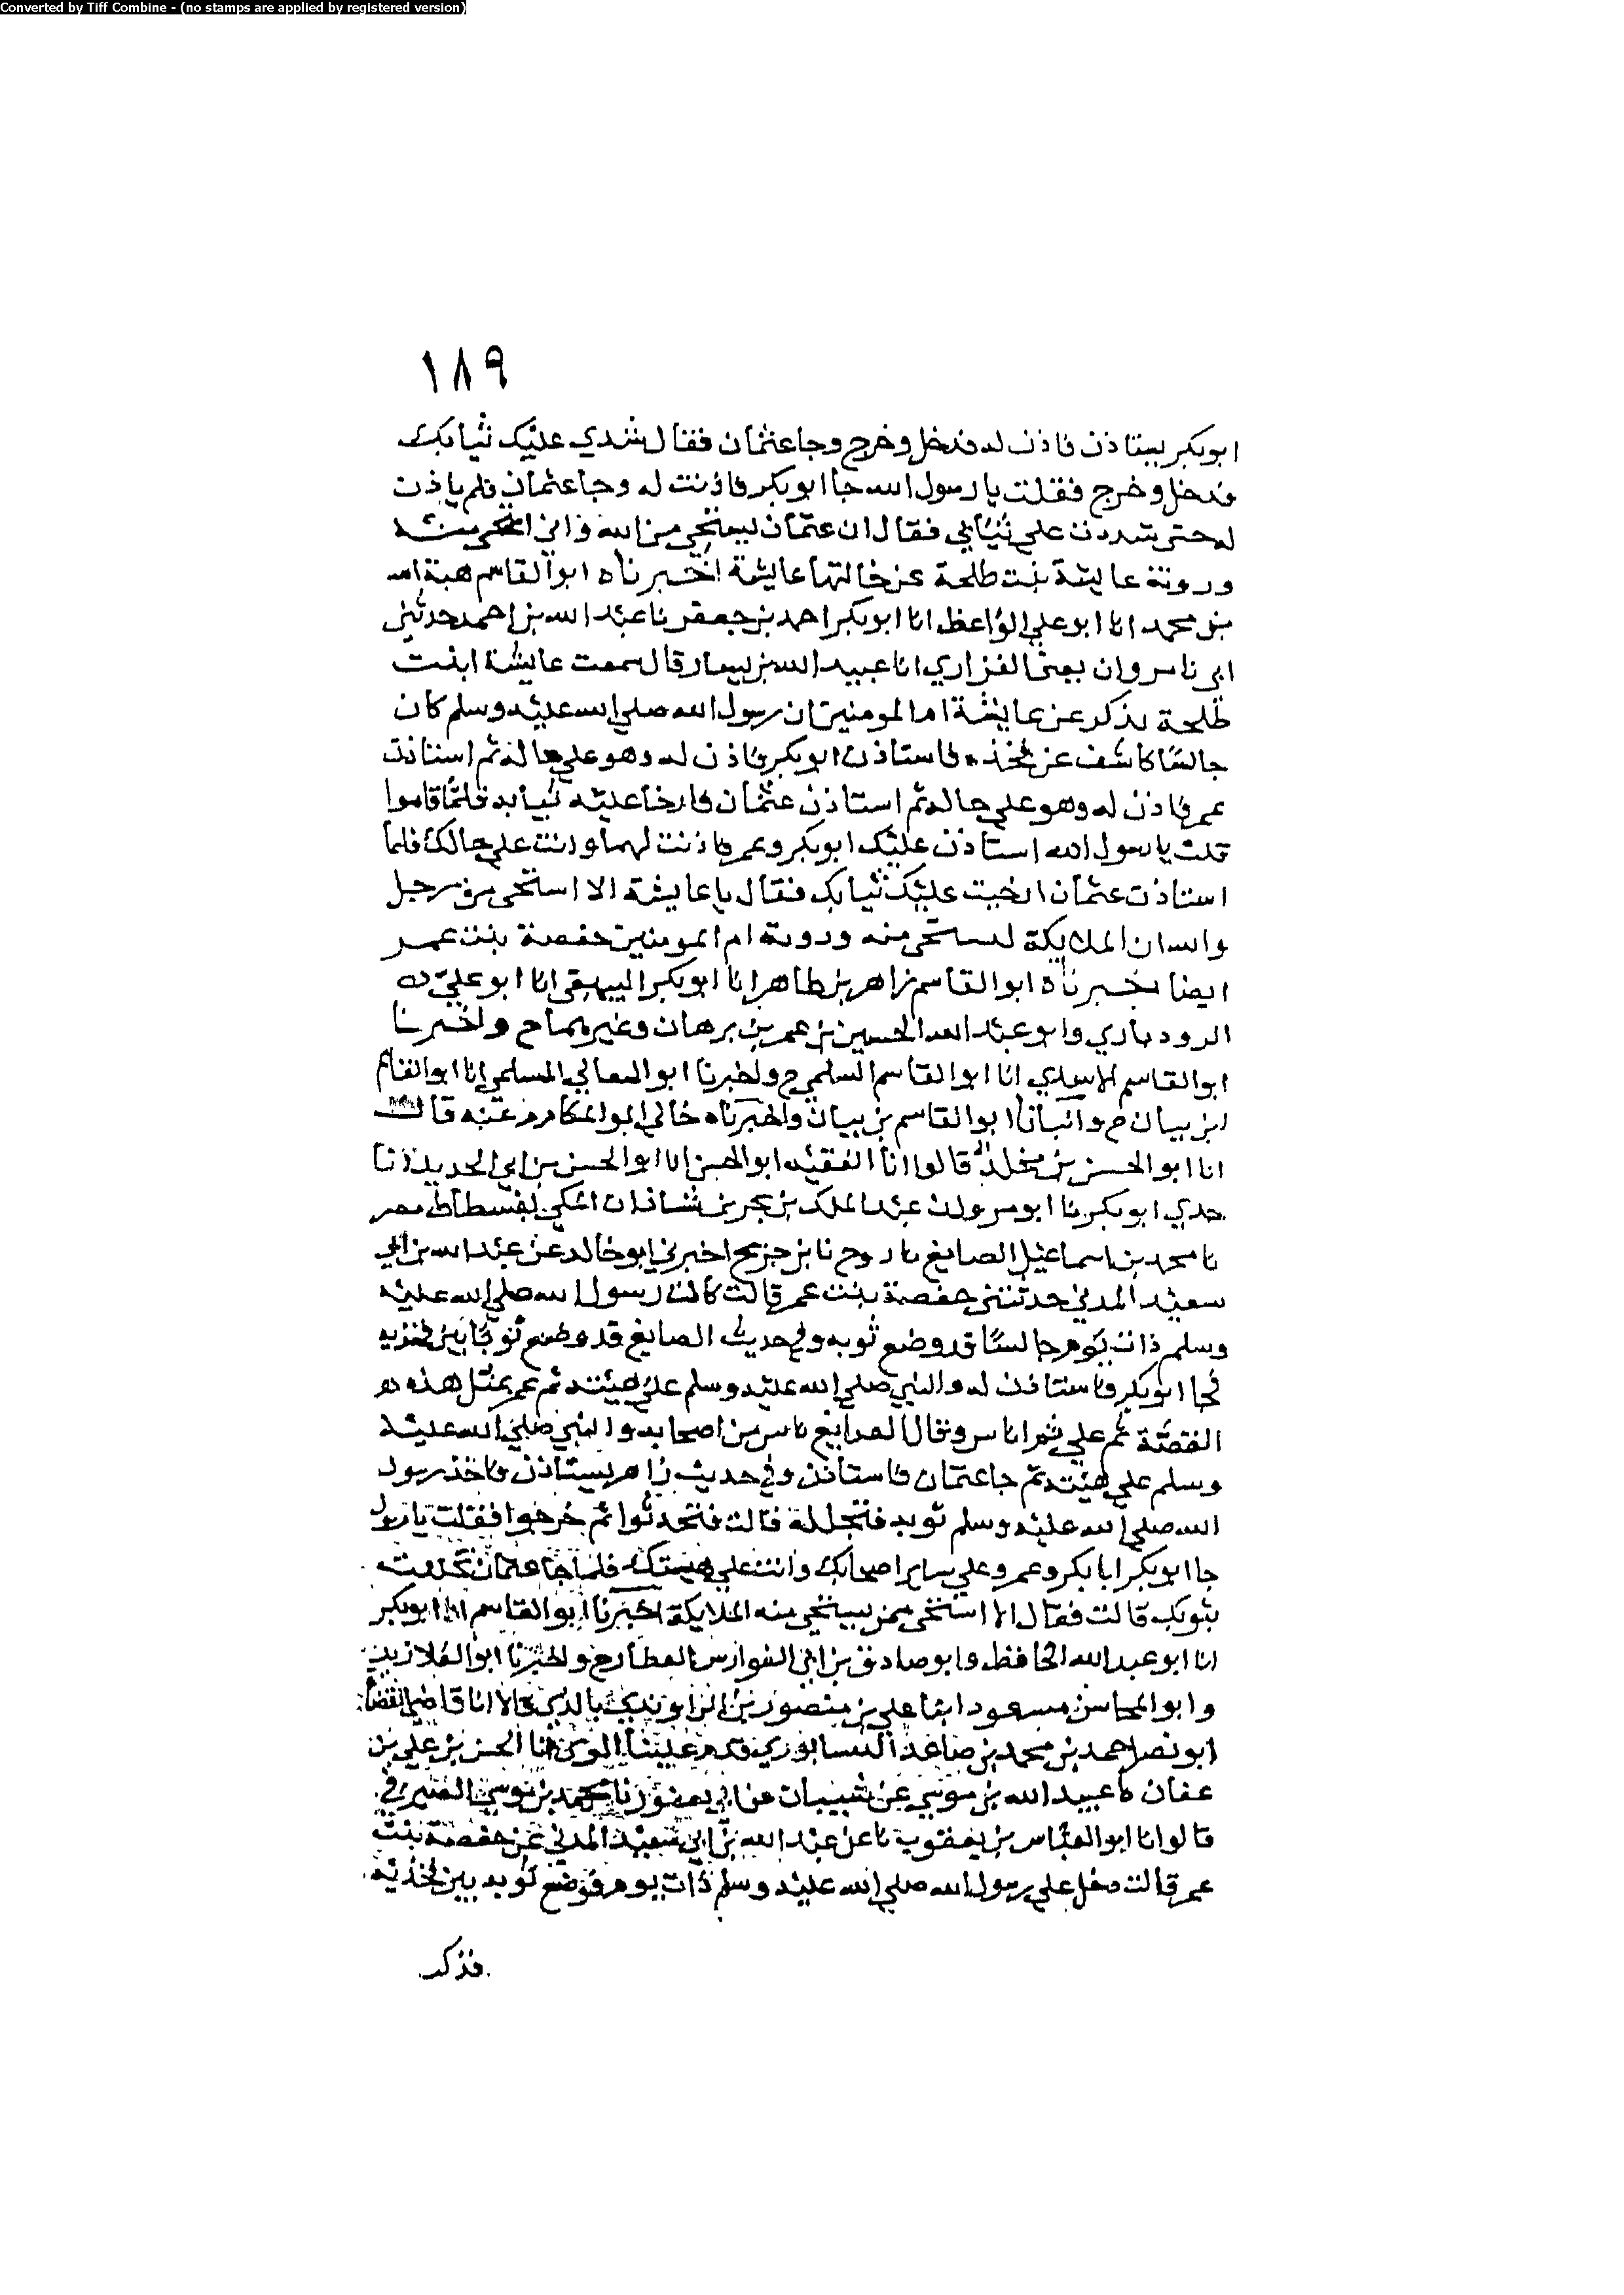 Converted by Tiff Combine - (no stamps are applied by registered version)
١٨٩
ابو بكر يستاذن فاذن له فدخل وخرج وجا عثمان فقال شدي عليك ثيابك
فدخل وخرج فقلت يا رسول الله جا ابو بكر فاذنت له وجا عثمان فلم ياذن
له حتى شددت علي ثيابي فقال ان عثمان ليستحي من الله واني استحي منه
وروته عايشة بنت طلحة عن خالتها عايشة اخبرناه ابو القاسم هبة الله
بن محمد انا ابو علي الواعظ انا ابو بكر احمد بن جعفر نا عبد الله بن احمد حدثني
ابي نا مروان يعني الفزاري انا عبيد الله بن يسار قال سمعت عايشة ابنت
طلحة يذكر عن عايشة ام المومنين ان رسول الله صلى الله عليه وسلم كان
جالسا كاشف عن فخذه فاستاذن ابو بكر فاذن له وهو علي حاله ثم استاذن
عمر فاذن له وهو علي حاله ثم استاذن عثمان فارخا عليه ثيابه فلما قاموا
قلت يا رسول الله استاذن عليك ابو بكر وعمر فاذنت لهما وانت علي حالك فلما
استاذن عثمان ارخيت عليك ثيابك فقال يا عايشة الا استحي من رجل
والله ان الملايكة لتستحي منه وروته ام المومنين حفصة بنت عمر
ايضا اخبرناه ابو القاسم زاهر بن طاهر انا ابو بكر البيهقي انا ابو علي
الروذباري وابو عبد الله الحسين بن عمر بن برهان وغيرهما ح واخبرنا
ابو القاسم انا ابو القاسم السلمي ح واخبرنا ابو المعالي السلمي انا ابو القاسم
ابن بيان ح وانبانا ابو القاسم بن بيان واخبرناه خالي ابو المكارم عنه قال
انا ابو الحسن بن مخلد قالوا انا الفقيه ابو الحسن انا ابو الحسن بن ابي الحديد انا
جدي ابو بكر نا ابو مروان عبد الملك بن بحر بن شاذان المكي بفسطاط مصر
نا محمد بن اسماعيل الصايغ نا روح نا بن جريج اخبرني ابو خالد عن عبد الله بن ابي
سعيد المدني حدثتني حفصة بنت عمر قالت كان رسول الله صلى الله عليه
وسلم ذات يوم جالسا قد وضع ثوبه وفي حديث الصايغ قد وضع ثوبا بين فخذيه
فجا ابو بكر فاستاذن له والنبي صلى الله عليه وسلم علي هيئته ثم عمر بمثل هذه
القصة ثم علي ثم اناس وقال الصايغ ناس من اصحابه والنبي صلى الله عليه
وسلم علي هيئته ثم جا عثمان فاستاذن وفي حديث زاهر يستاذن فاخذ رسول
الله صلى الله عليه وسلم ثوبه فتجلله قالت فتحدثوا ثم خرجوا فقلت يا رسول
جا ابو بكر ابا بكر وعمر وعلي ساير اصحابك وانت علي هيئتك فلما جا عثمان تجللت
بثوبك قالت فقال الا استحي ممن يستحي منه الملايكة اخبرنا ابو القاسم انا ابو بكر
انا ابو عبد الله الحافظ وابو صادق بن ابي الفوارس العطار ح واخبرنا ابو العلا زيد
وابو المحاسن مسعود ابنا علي بن منصور بن الراوندي بالري قالا انا قاضي القضاة
ابو نصر احمد بن محمد بن صاعد النيسابوري قدم علينا الري انا الحسن بن علي بن
عفان نا عبيد الله بن موسي عن شيبان عن ابي يعفور نا محمد بن موسي الصيرفي
قالوا انا ابو العباس بن يعقوب نا عن عبد الله بن ابي سعيد المدني عن حفصة بنت
عمر قالت دخل علي رسول الله صلى الله عليه وسلم ذات يوم فوضع ثوبه بين فخذيه
فذكر